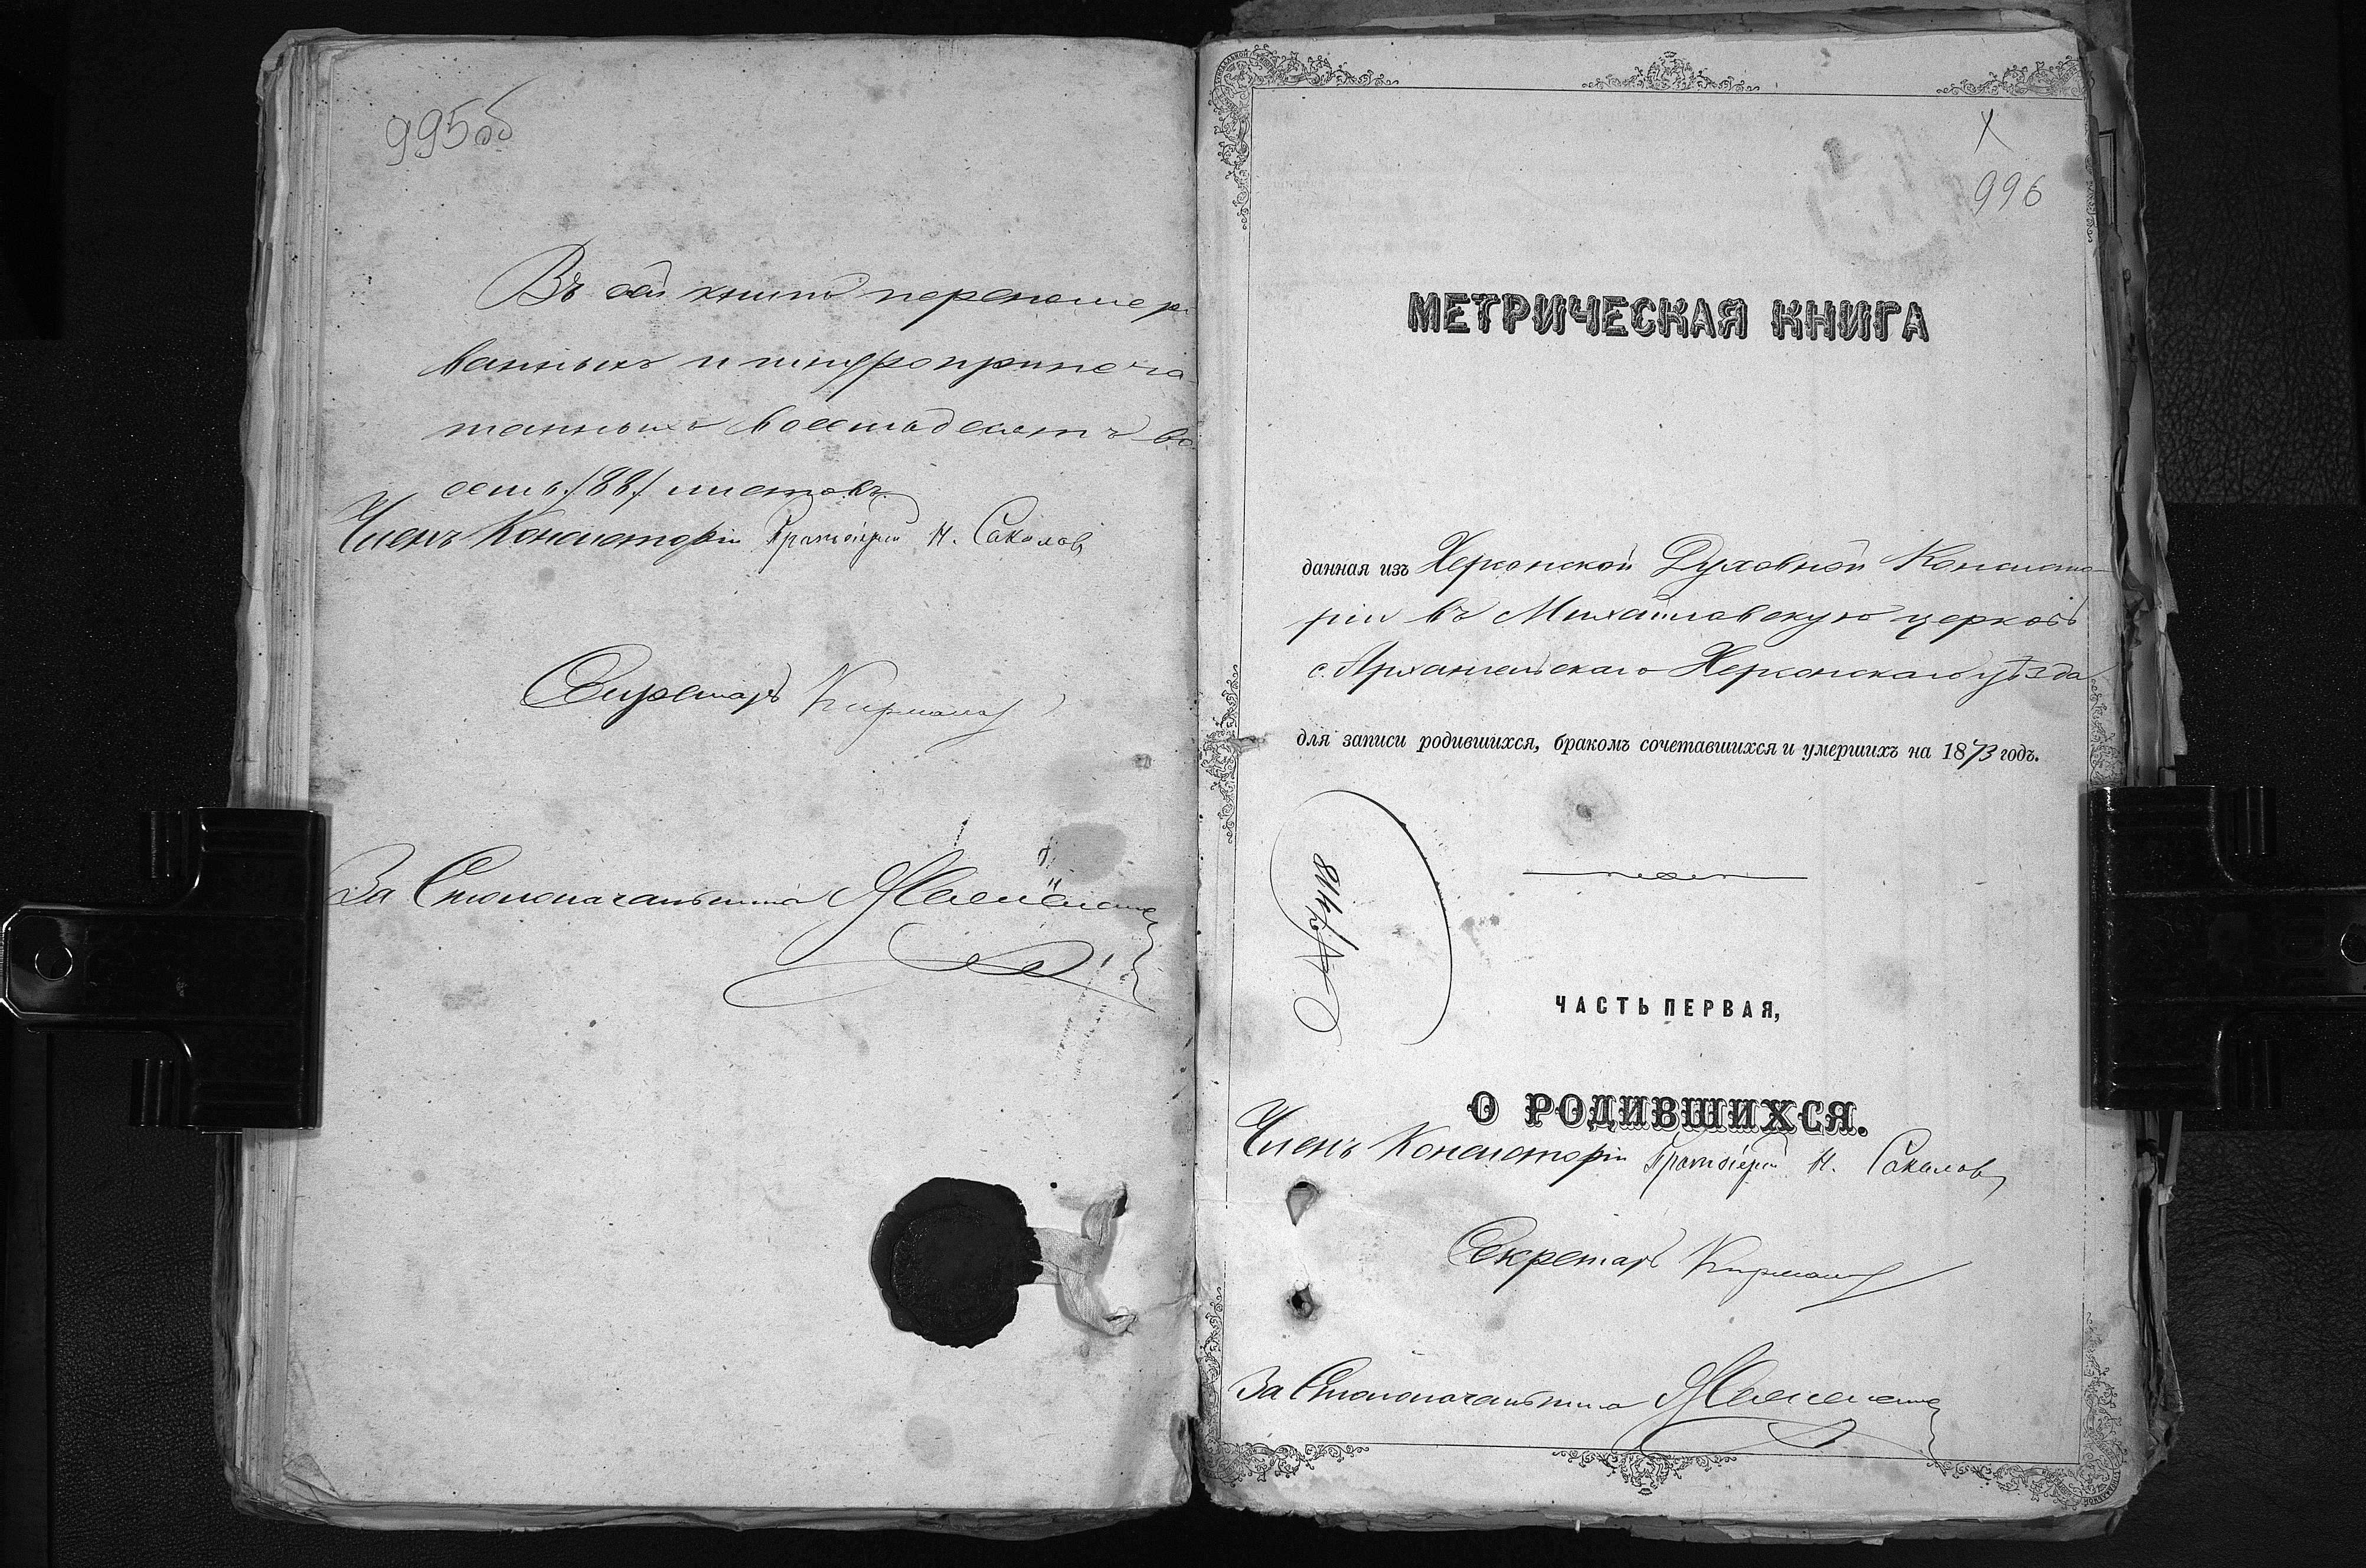 995об
Въ сей книгѣ перенумеро
ванныхъ и шнуроприпеча
танныхъ восемьдесятъ во
семь /88/ листовъ
Членъ Консисторіи Протоіерей Н. Соколовъ
Секретарь
За Столоначальника
X
996
МЕТРИЧЕСКАЯ КНИГА
данная изъ Херсонской Духовной Консисто
ріи въ Михайловскую церковь
с. Архангельскаго Херсонскаго уѣзда
для записи родившихся, бракомъ сочетавшихся и умершихъ на 1873 годъ.
№7418
ЧАСТЬ ПЕРВАЯ,
О РОДИВШИХСЯ.
Членъ Консисторіи Протоіерей Н. Соколовъ
Секретарь
За Столоначальника